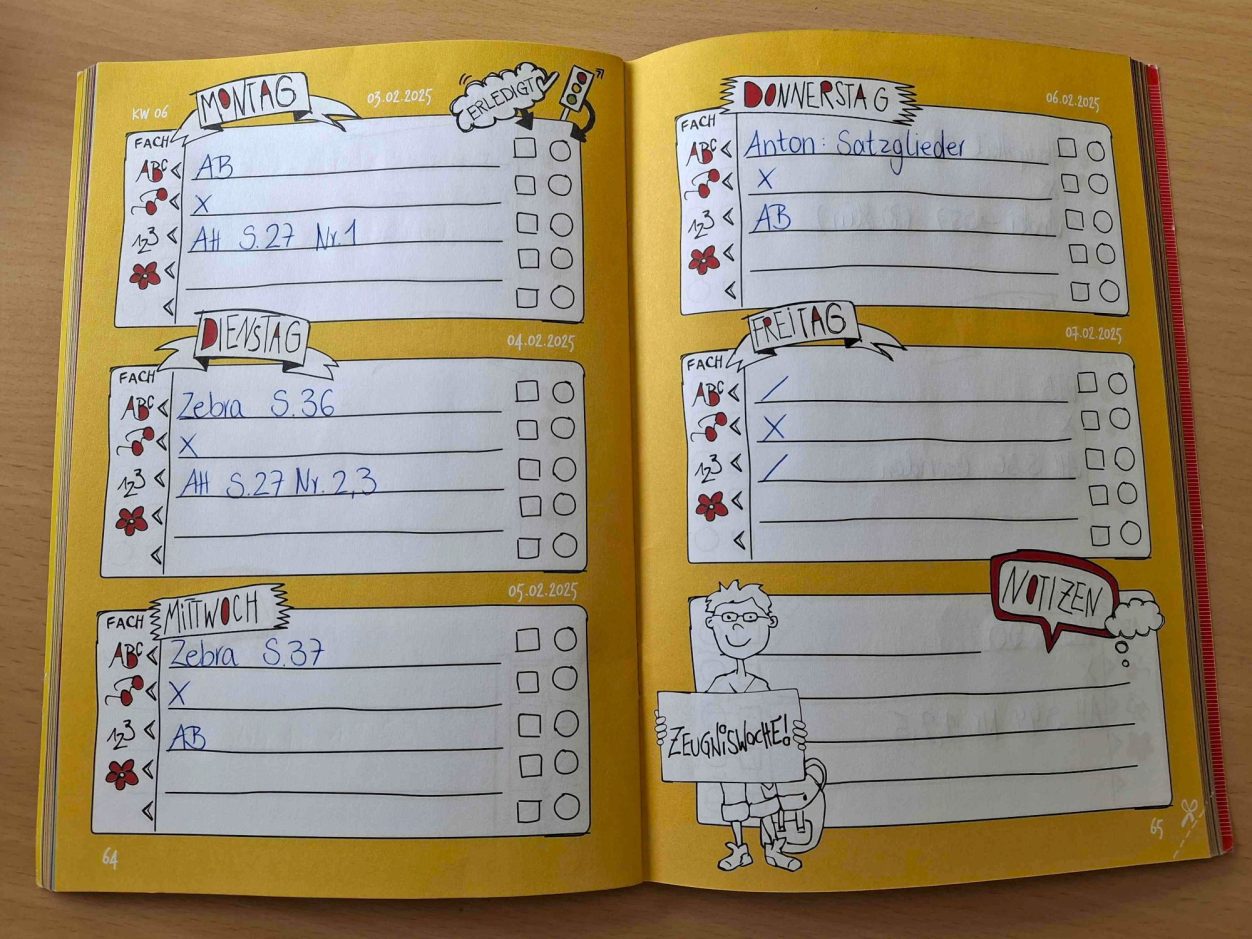 KW 06
MONTAG
03.02.2025
ERLEDIGT
FACH
ABC < AB
< X
123 < AH S.27 Nr.1
<
<
DIENSTAG
04.02.2025
FACH
ABC < Zebra S.36
< X
123 < AH S.27 Nr. 2,3
<
<
MITTWOCH
05.02.2025
FACH
ABC < Zebra S.37
< X
123 < AB
<
<
64
DONNERSTAG
06.02.2025
FACH
ABC < Anton: Satzglieder
< X
123 < AB
<
<
FREITAG
07.02.2025
FACH
ABC < /
< X
123 < /
<
<
NOTIZEN
ZEUGNISWOCHE!
65